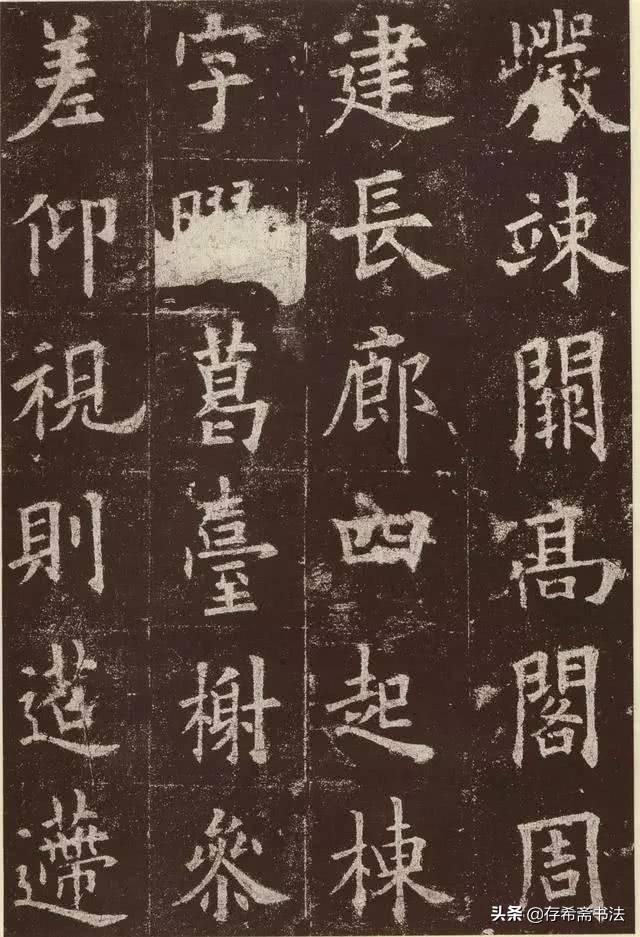 巖竦闕高閣周
建長廊四起棟
宇葛臺榭參
差仰視則迢遰
头条 @存希斋书法